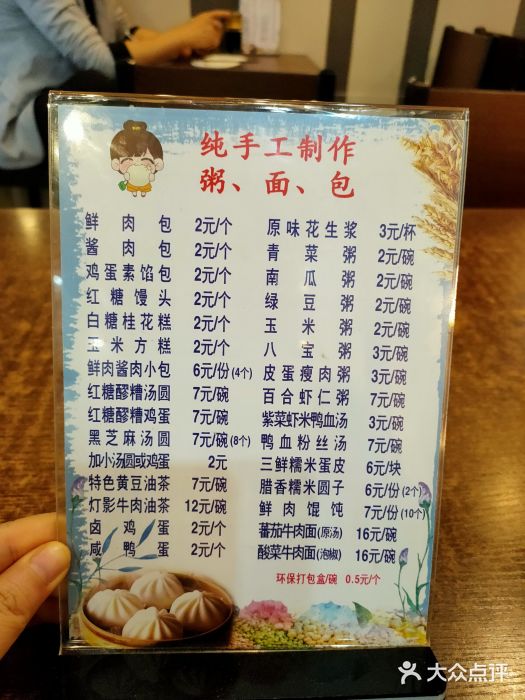 纯手工制作
粥、面、包
鲜肉包 2元/个
酱肉包 2元/个
鸡蛋素馅包 2元/个
红糖馒头 2元/个
白糖桂花糕 2元/个
玉米方糕 2元/个
鲜肉酱肉小包 6元/份(4个)
红糖醪糟汤圆 7元/碗
红糖醪糟鸡蛋 7元/碗
黑芝麻汤圆 7元/碗(8个)
加小汤圆或鸡蛋 2元
特色黄豆油茶 7元/碗
灯影牛肉油茶 12元/碗
卤鸡蛋 2元/个
咸鸭蛋 2元/个
原味花生浆 3元/杯
青菜粥 2元/碗
南瓜粥 2元/碗
绿豆粥 2元/碗
玉米粥 2元/碗
八宝粥 3元/碗
皮蛋瘦肉粥 3元/碗
百合虾仁粥 7元/碗
紫菜虾米鸭血汤 3元/碗
鸭血粉丝汤 7元/碗
三鲜糯米蛋皮 6元/块
腊香糯米圆子 6元/份(2个)
鲜肉馄饨 7元/份(10个)
蕃茄牛肉面(原汤) 16元/碗
酸菜牛肉面(泡椒) 16元/碗
环保打包盒/碗 0.5元/个
大众点评